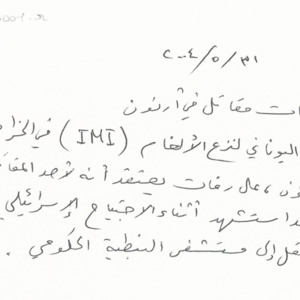 ٢٠٠٤/٥/٣١
ات مقاتل في أرنون
اليوناني لنزع الألغام (IMI) في الخرا
ون، على رفات يعتقد أنه لأحد المقا
استشهد أثناء الاجتياح الإسرائيلي
قل إلى مستشفى النبطية الحكومي.